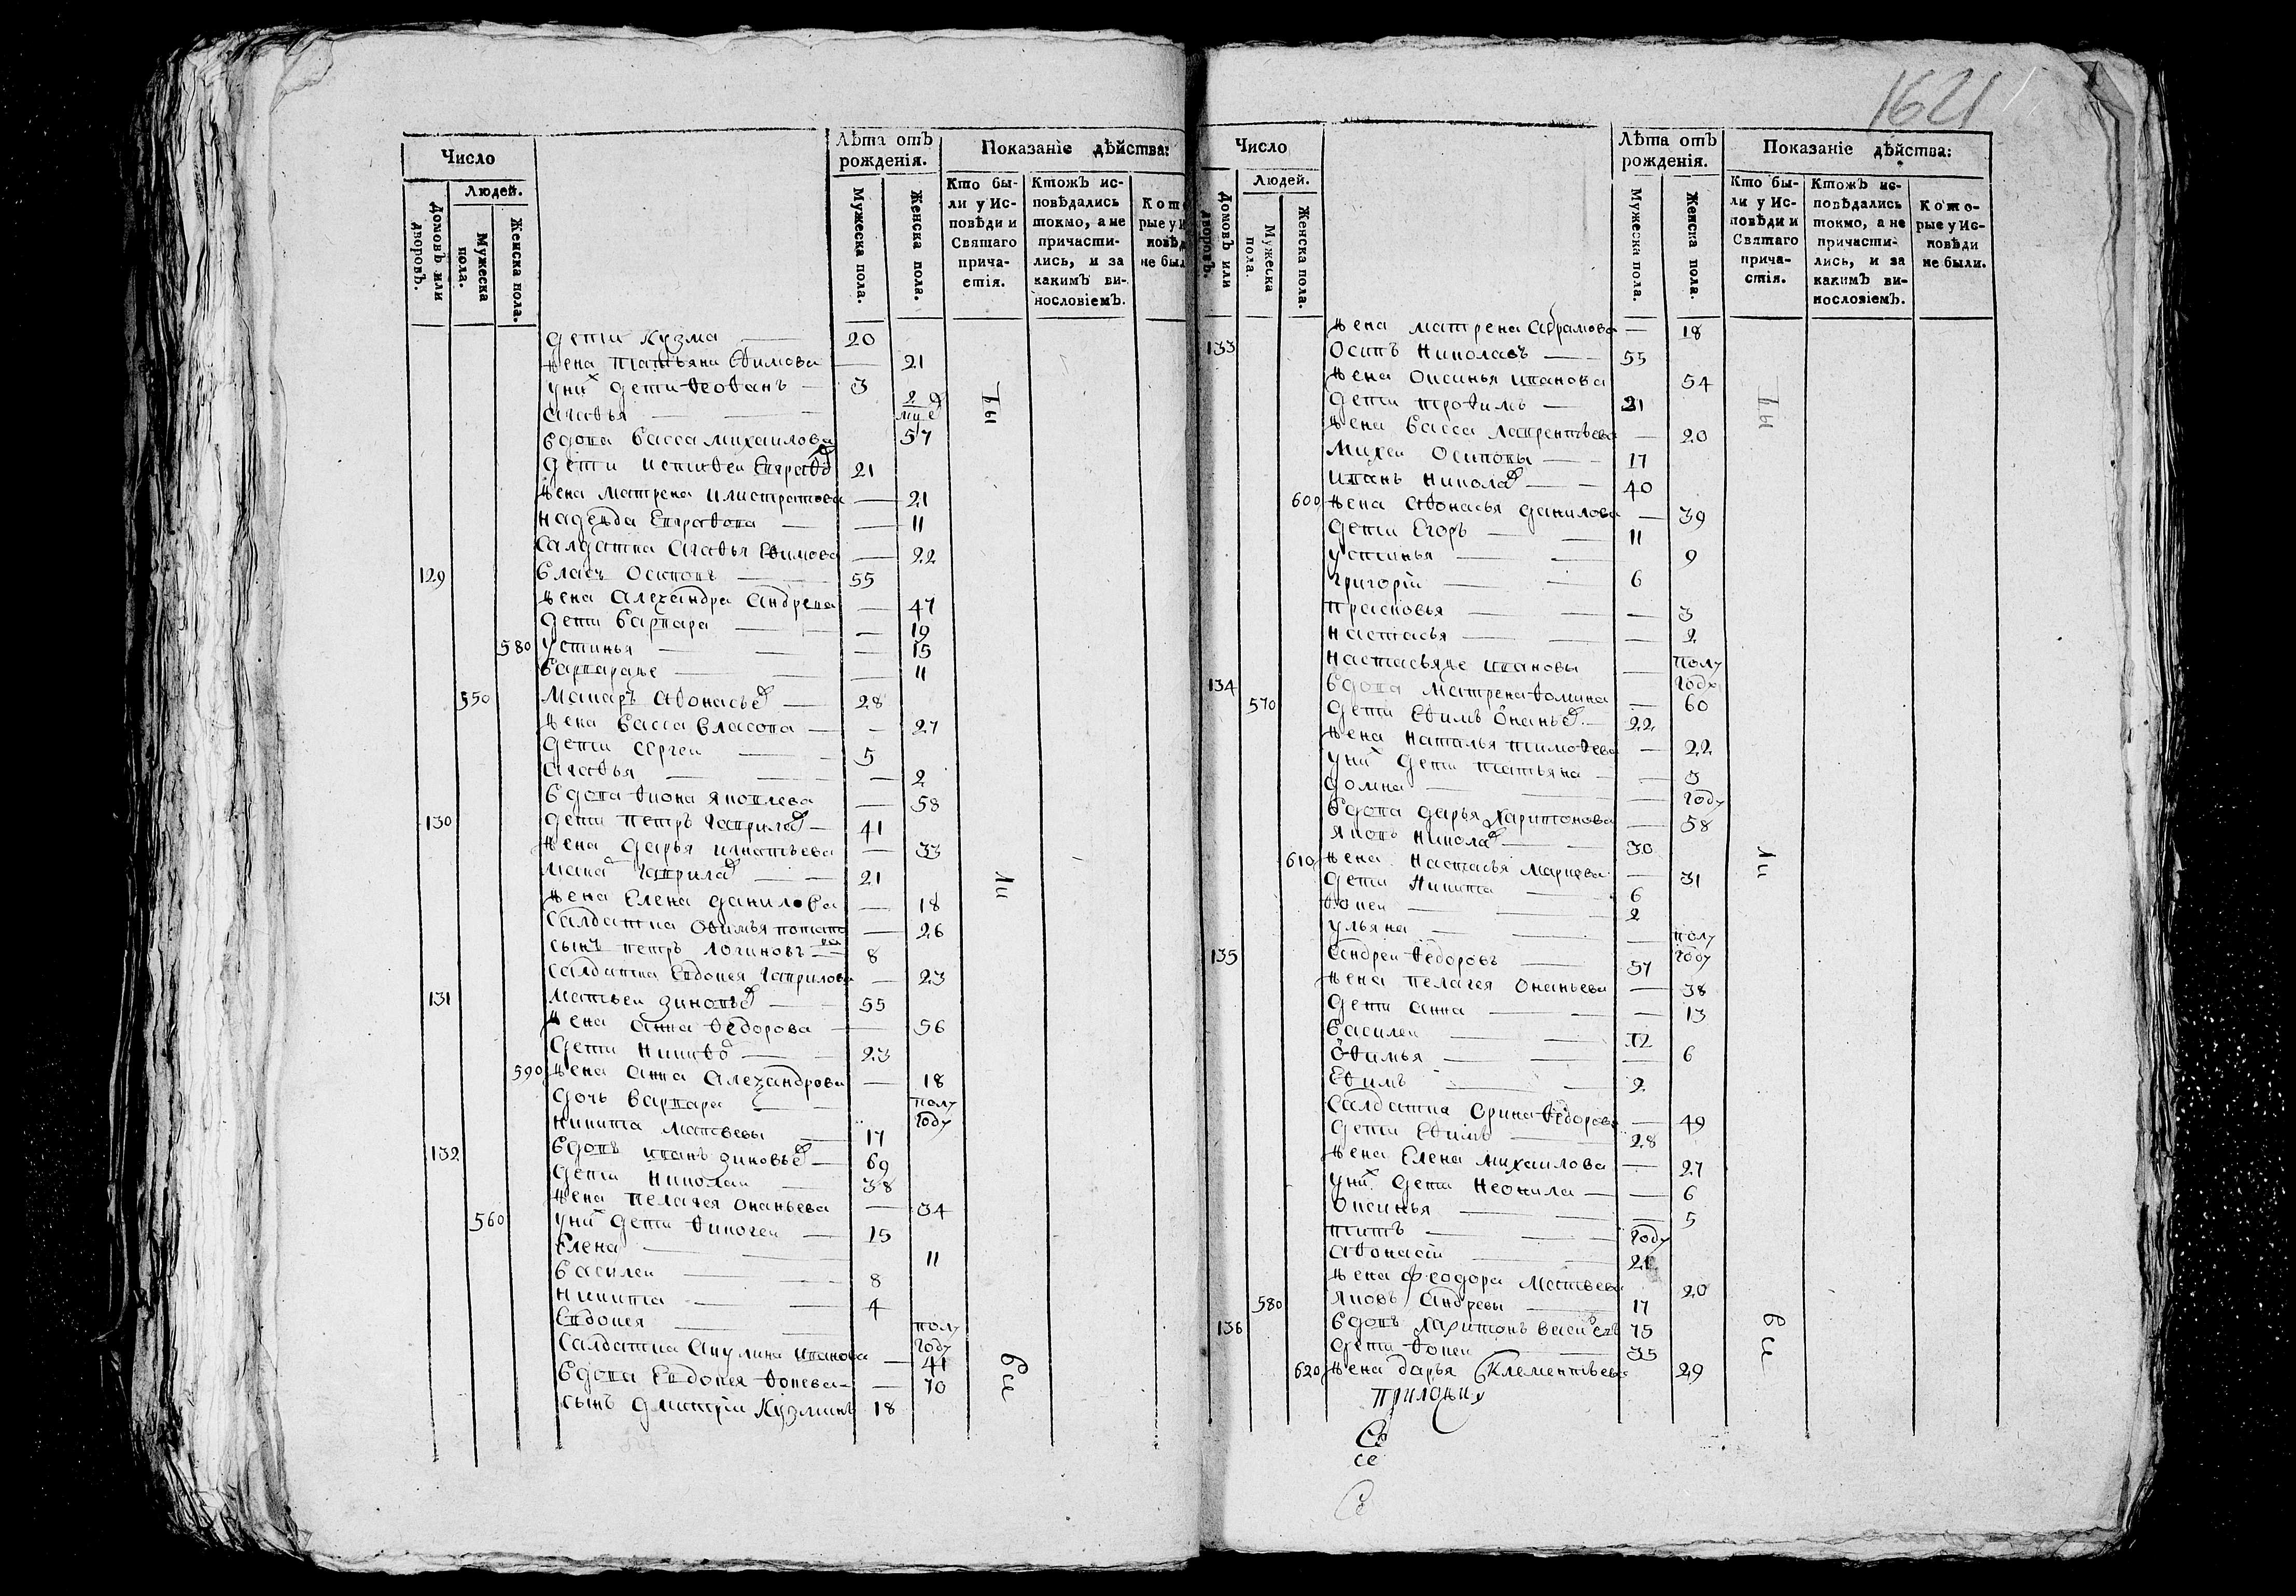 1621
Число
Лѣта отъ рожденія.
Показаніе дѣйства:
Людей.
Домовъ или дворовъ.
Мужеска пола.
Женска пола.
Мужеска пола.
Женска пола.
Кто были у Исповѣди и Святаго причастія.
Ктожъ исповѣдались токмо, а не причастились, и за какимъ винословіемъ.
Которые у Исповѣд не был
дети Кузма 20
жена татьяна Ефимова — 21
у них дети Феофанъ 3
агафья
вдова васса михаилова 57
дети 21
жена матрена илистратова — 21
надежда — 11
Салдатка агафья Ефимова — 22
129 власъ Осиповъ 55
жена Алеѯандра андреева — 47
дети варвара — 19
580 устинья — 15
варвара же — 11
550 макаръ афонасье 28
жена васса власова — 27
дети сергеи 5
агафья — 2
вдова фиона яковлева — 58
130 дети петръ гаврила 41
жена дарья игнатьева — 33
гаврила 21
жена Елена данилова — 18
Салдатка офимья — 26
сынъ петръ логиновъ 8
Салдатка Евдокея гаврилова — 23
131 матвеи зиновье 55
жена анна федорова — 56
дети 23
590 жена анна алеѯандрова — 18
дочь варвара полу году
никита матвевы 17
132 вдовъ иванъ зиновье 69
дети николаи 38
жена пелагея онаньева — 34
560 у них дети финогеи 15
Елена 11
василеи 8
никита 4
Евдокея полу году
Салдатка акулина иванова — 41
вдова Евдокея фокева — 70
сынъ дмитріи Кузминъ 18
Число
Лѣта отъ рожденія.
Показаніе дѣйства:
Людей.
Домовъ или дворовъ.
Мужеска пола.
Женска пола.
Мужеска пола.
Женска пола.
Кто были у Исповѣди и Святаго причастія.
Ктожъ исповѣдались токмо, а не причастились, и за какимъ винословіемъ.
Которые у Исповѣди не были.
жена матрена абрамова — 18
133 Осипъ николаевъ 55
жена оксинья иванова 54
дети трофимъ 21
жена васса лаврентьева — 20
михеи осиповы 17
иванъ никола 40
600 жена афонасья данилова — 39
дети Егоръ 11
устинья 9
григоріи 6
прасковья — 3
настасья — 2
настасья же ивановы — полу году
134 вдова матрена фомина — 60
570 дети Ефимъ онанье 22
жена наталья тимофеева — 22
у них дети татьяна — 3
домна — году
вдова дарья харитонова — 58
яковъ никола 30
610 жена настасья маркова — 31
дети никита 6
фокеи 2
ульяна — полу году
135 андреи федоровъ 57
жена пелагея онаньева — 38
дети анна — 13
василеи 12
офимья — 6
Ефимъ 2
Салдатка орина федорова — 49
дети Ефимъ 28
жена Елена михаилова — 27
у них дети неонила — 6
оксинья — 5
титъ году
афонасіи 21
жена феодора матвеева 20
580 яковъ андревы 17
136 вдовъ харитонъ васильевъ 75
дети фокеи 35
620 жена дарья Клементьева 29
приложи